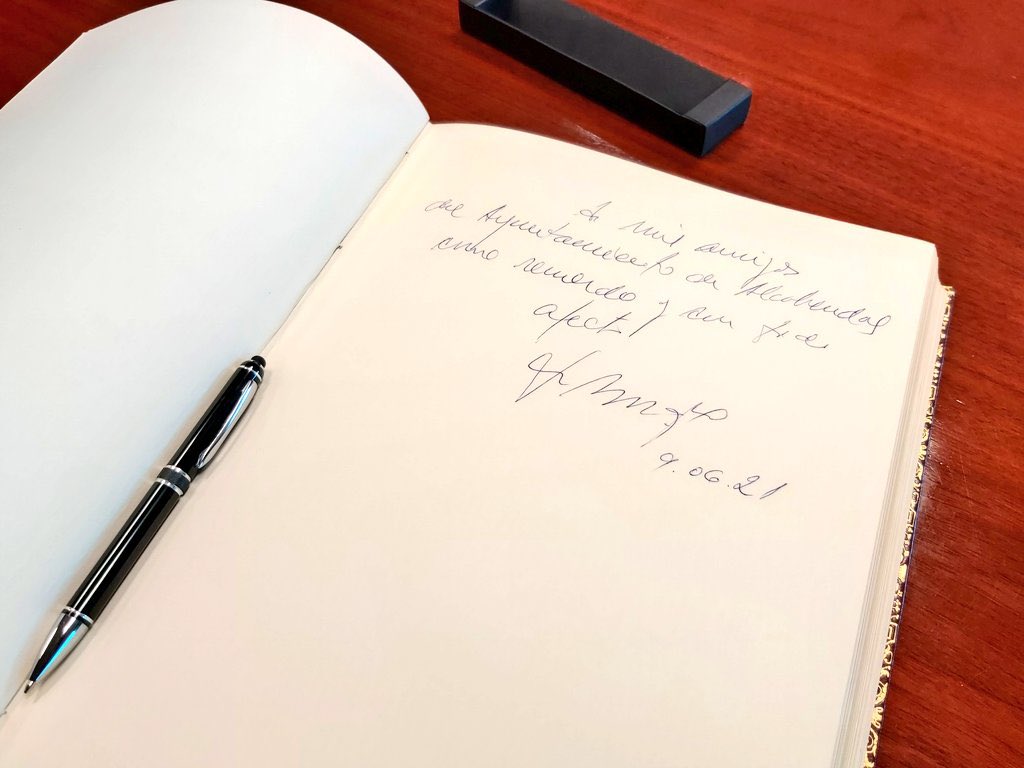 A mis amigos
del Ayuntamiento de Alcobendas
como recuerdo y con todo
afecto
9.06.21